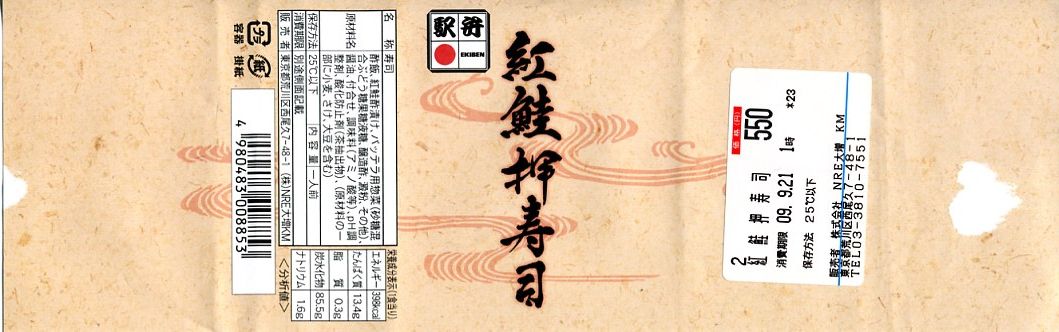 駅弁
EKIBEN
紅鮭押寿司
名称 寿司
原材料名 酢飯、紅鮭酢漬け、バッテラ用惣菜(砂糖混
合ぶどう糖果糖液糖、醸造酢、澱粉、その他)、
醤油、付合せ、調味料(アミノ酸等)、pH調
整剤、酸化防止剤(茶抽出物)、(原材料の一
部に小麦、さけ、大豆を含む)
保存方法 25℃以下 内容量 一人前
消費期限 別途側面記載
販売者 東京都荒川区西尾久7-48-1 (株)NRE大増KM
栄養成分表示(1食当り)
エネルギー 398kcal
たんぱく質 13.4g
脂質 0.3g
炭水化物 85.5g
ナトリウム 1.6g
<分析値>
プラ
容器
紙
掛紙
4 980483 008853
*23
価格(円)
550
1時
2
紅鮭押寿司
消費期限 09.9.21
保存方法 25℃以下
販売者 株式会社 NRE大増 KM
東京都荒川区西尾久7-48-1
TEL03-3810-7551